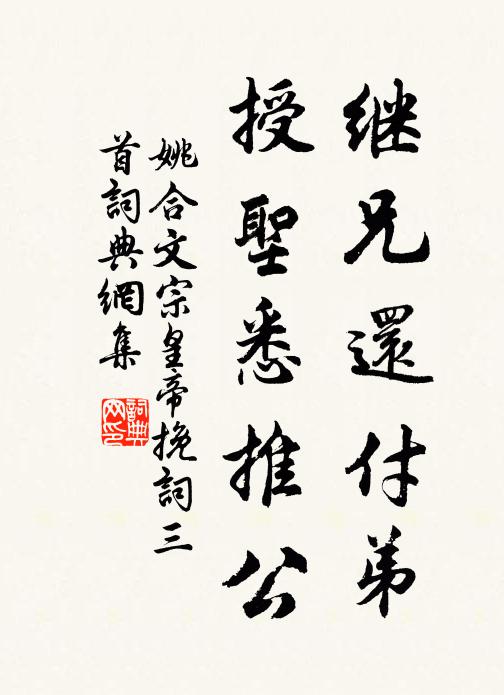 继兄還付弟
授聖悉推公
姚合文宗皇帝挽詞三
首詞典網集
詞典网印